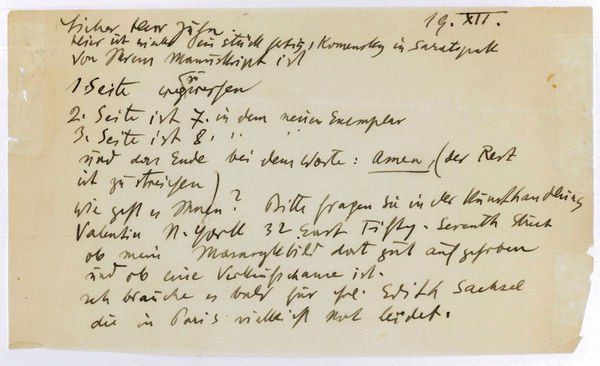 Lieber Herr 19. XII.
Hier ist wieder ein Stück fertig, Komensky in
von Ihrem Manuskript ist
1. Seite wegzuwerfen
2. Seite ist 7. in dem neuen Exemplar
3. Seite ist 8. " "
und das Ende bei dem Worte: Amen, (der Rest
ist zu streichen)
wie geht es Ihnen? Bitte fragen Sie in der Kunsthandlung
Valentin N. York 32 East Fifty-Seventh Street
ob mein Masarykbild dort gut aufgehoben
und ob eine Verkaufschance ist.
ich brauche es bald für Frl. Edith Sachsel
die in Paris vielleicht Not leidet.